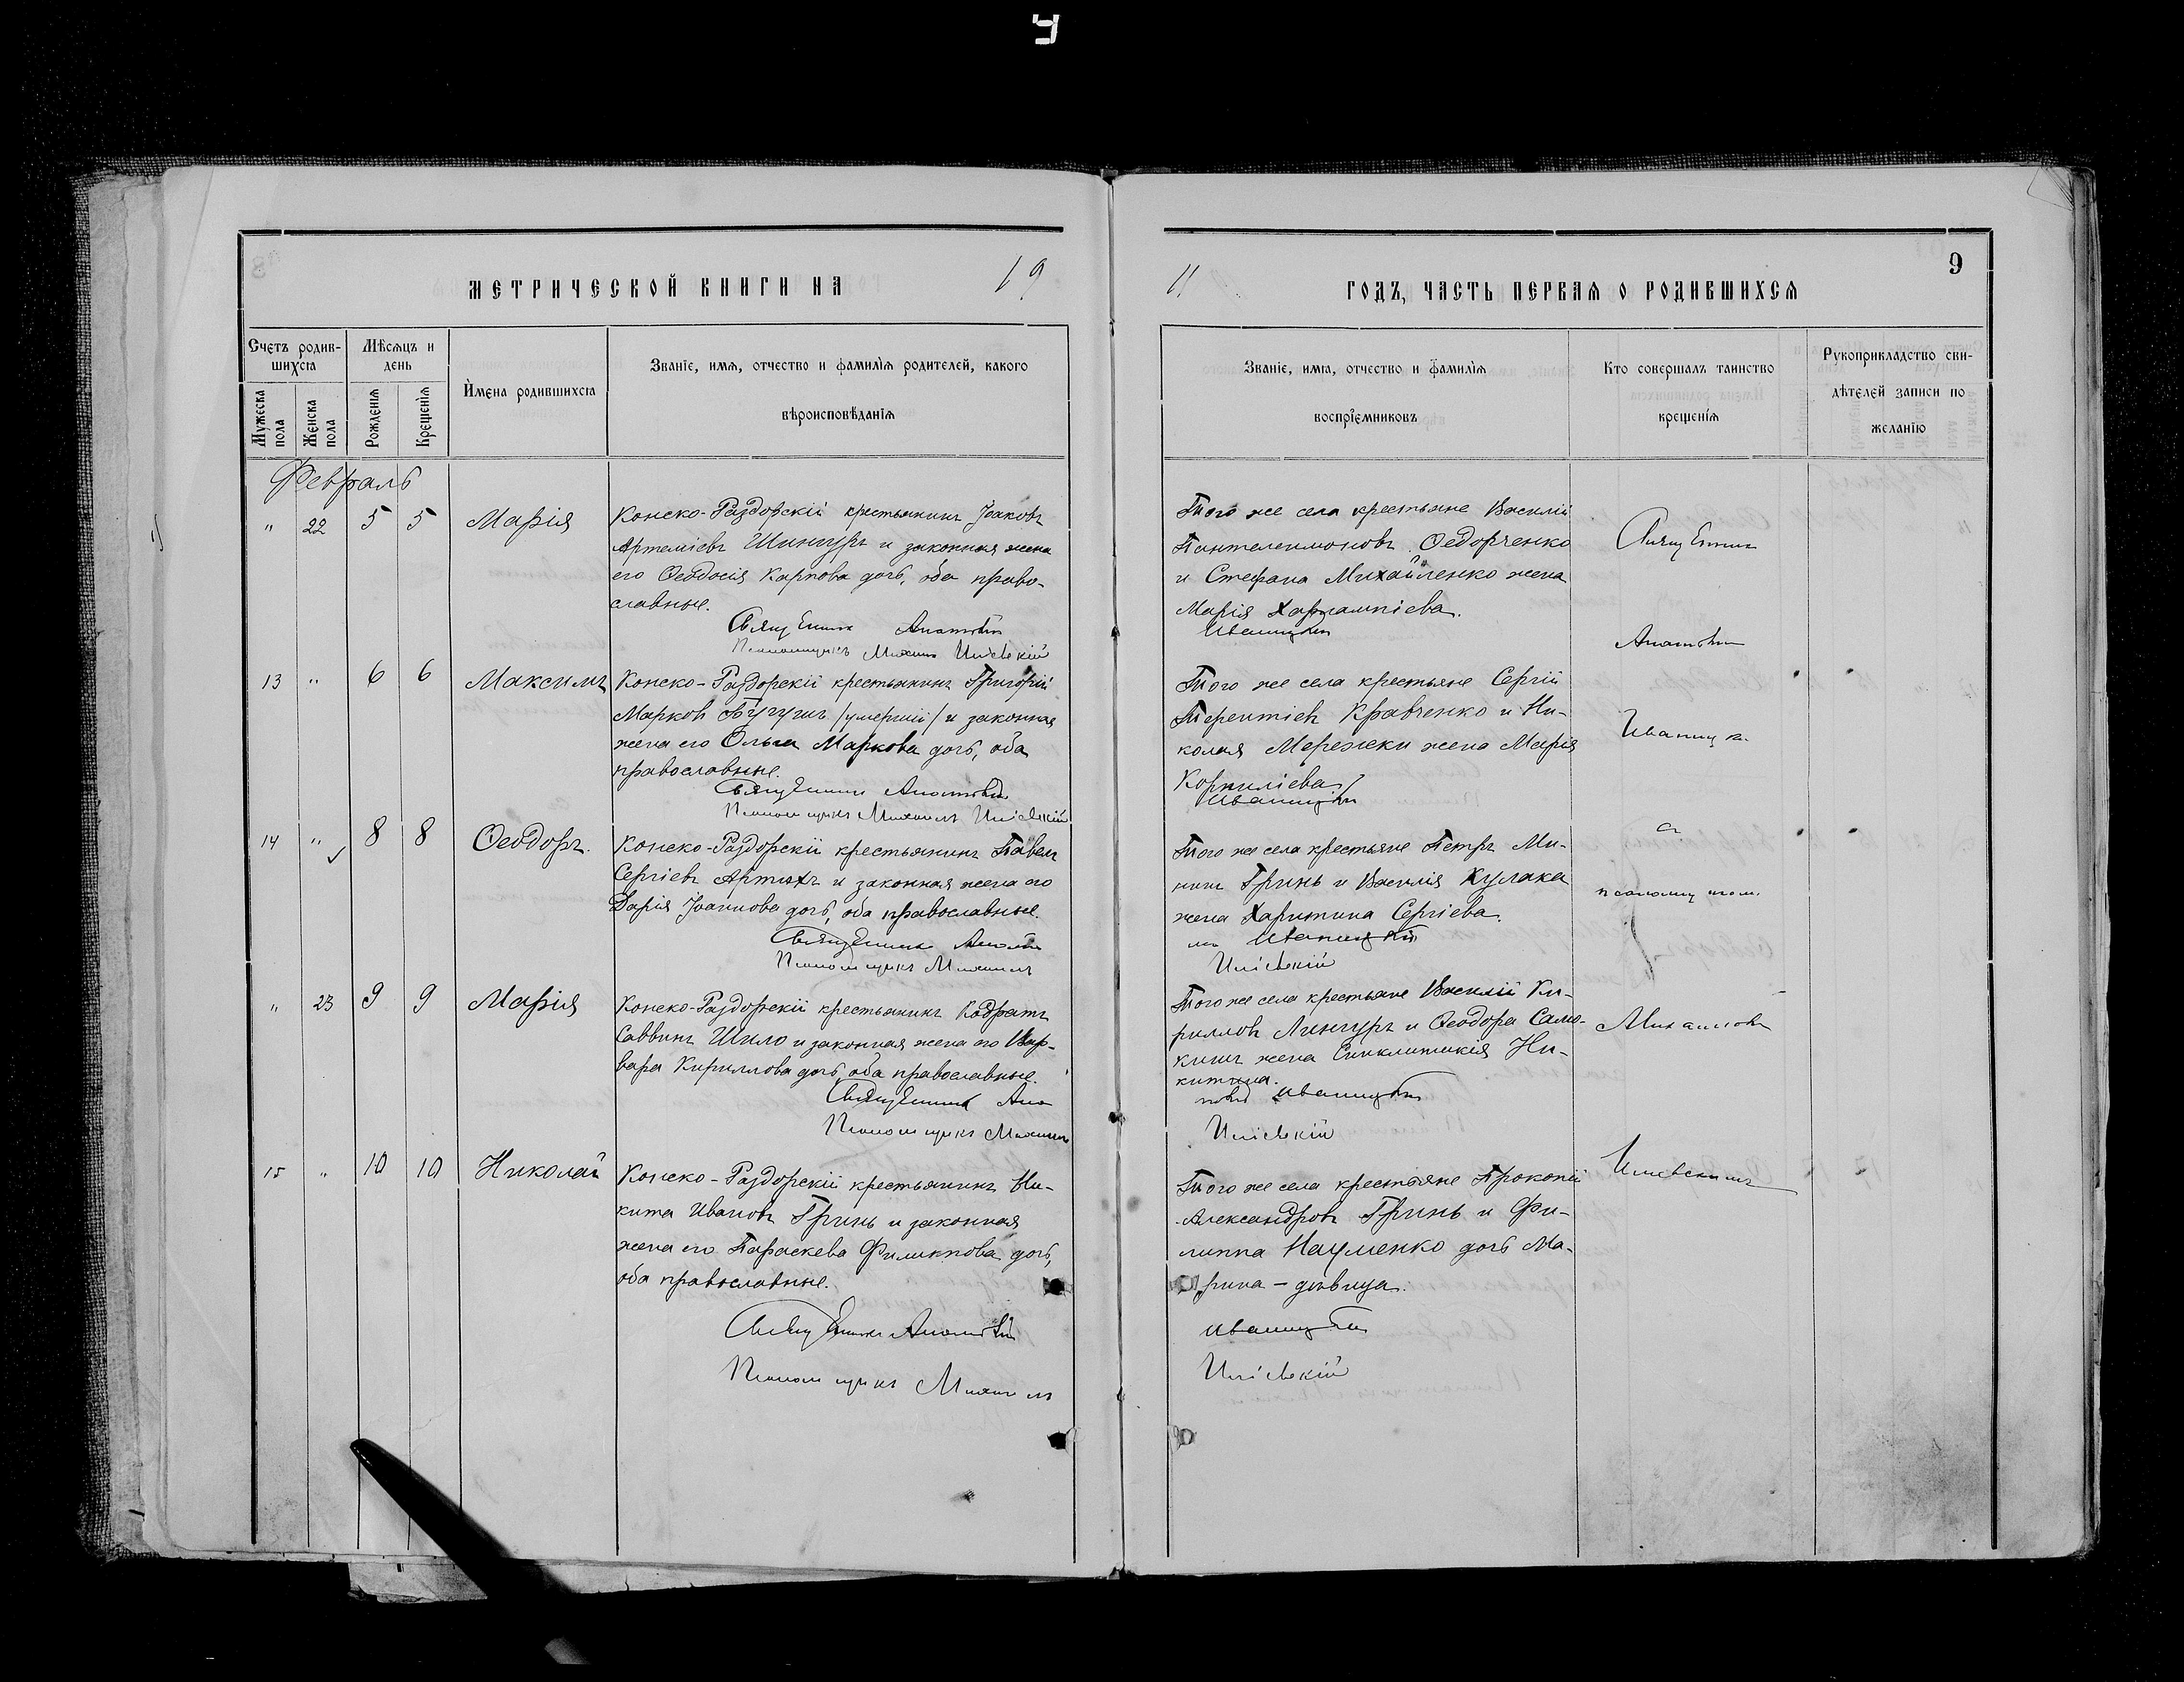 9
МЕТРИЧЕСКОЙ КНИГИ НА 19
Счетъ родив-
шихся
Мѣсяцъ и
день
Мужеска
пола
Женска
пола
Рожденія
Крещенія
Имена родившихся
Званіе, имя, отчество и фамилія родителей, какого
вѣроисповѣданія
Февраль
" 22 5 5 Марія
Конско-Раздорскій крестьянинъ Іоаковъ
Артеміевъ Шингуръ и законная жена
его Ѳеодосія Карпова дочь, оба право-
славные.
Священникъ
Псаломщикъ Михаилъ
13 " 6 6 Максимъ
Конско-Раздорскій крестьянинъ Григорій
Марковъ /умершій/ и законная
жена его Ольга Маркова дочь, оба
православные.
Священникъ
Псаломщикъ Михаилъ
14 " 8 8 Ѳеодоръ.
Конско-Раздорскій крестьянинъ Павелъ
Сергіевъ Артюхъ и законная жена его
Дарія Іоаннова дочь, оба православные.
Священникъ
Псаломщикъ Михаилъ
" 23 9 9 Марія
Конско-Раздорскій крестьянинъ Кодратъ
Саввинъ Шило и законная жена его Вар-
вара Кириллова дочь, оба православные.
Священникъ
Псаломщикъ Михаилъ
15 " 10 10 Николай
Конско-Раздорскій крестьянинъ Ни-
кита Ивановъ Гринь и законная
жена его Параскева Филиппова дочь,
оба православные.
Священникъ
Псаломщикъ Михаилъ
11 ГОДЪ, ЧАСТЬ ПЕРВАЯ О РОДИВШИХСЯ
9
Званіе, имя, отчество и фамилія
воспріемниковъ
Кто совершалъ таинство
крещенія
Рукоприкладство сви-
дѣтелей записи по
желанію
Того же села крестьяне Василій
Пантелеимоновъ Ѳедорченко
и Стефана Михайленко жена
Марія Харлампіева.
Иваницкій
Того же села крестьяне Сергій
Терентіевъ Кравченко и Ни-
колая Мережки жена Марія
Корниліева
Иваницкій
Того же села крестьяне Петръ Ми-
нинъ Гринь и Василія Кулака
жена Харитина Сергіева.
Иваницкій
Того же села крестьяне Василій Ки-
рилловъ Лингуръ и Ѳеодора Само-
киши жена Синклитикія Ни-
китина.
Иваницкій
Того же села крестьяне Прокопій
Александровъ Гринь и Фи-
липпа Науменко дочь Ма-
рина - дѣвица.
Иваницкій
Священникъ
Иваницк.
съ
псаломщикомъ
Михаиломъ